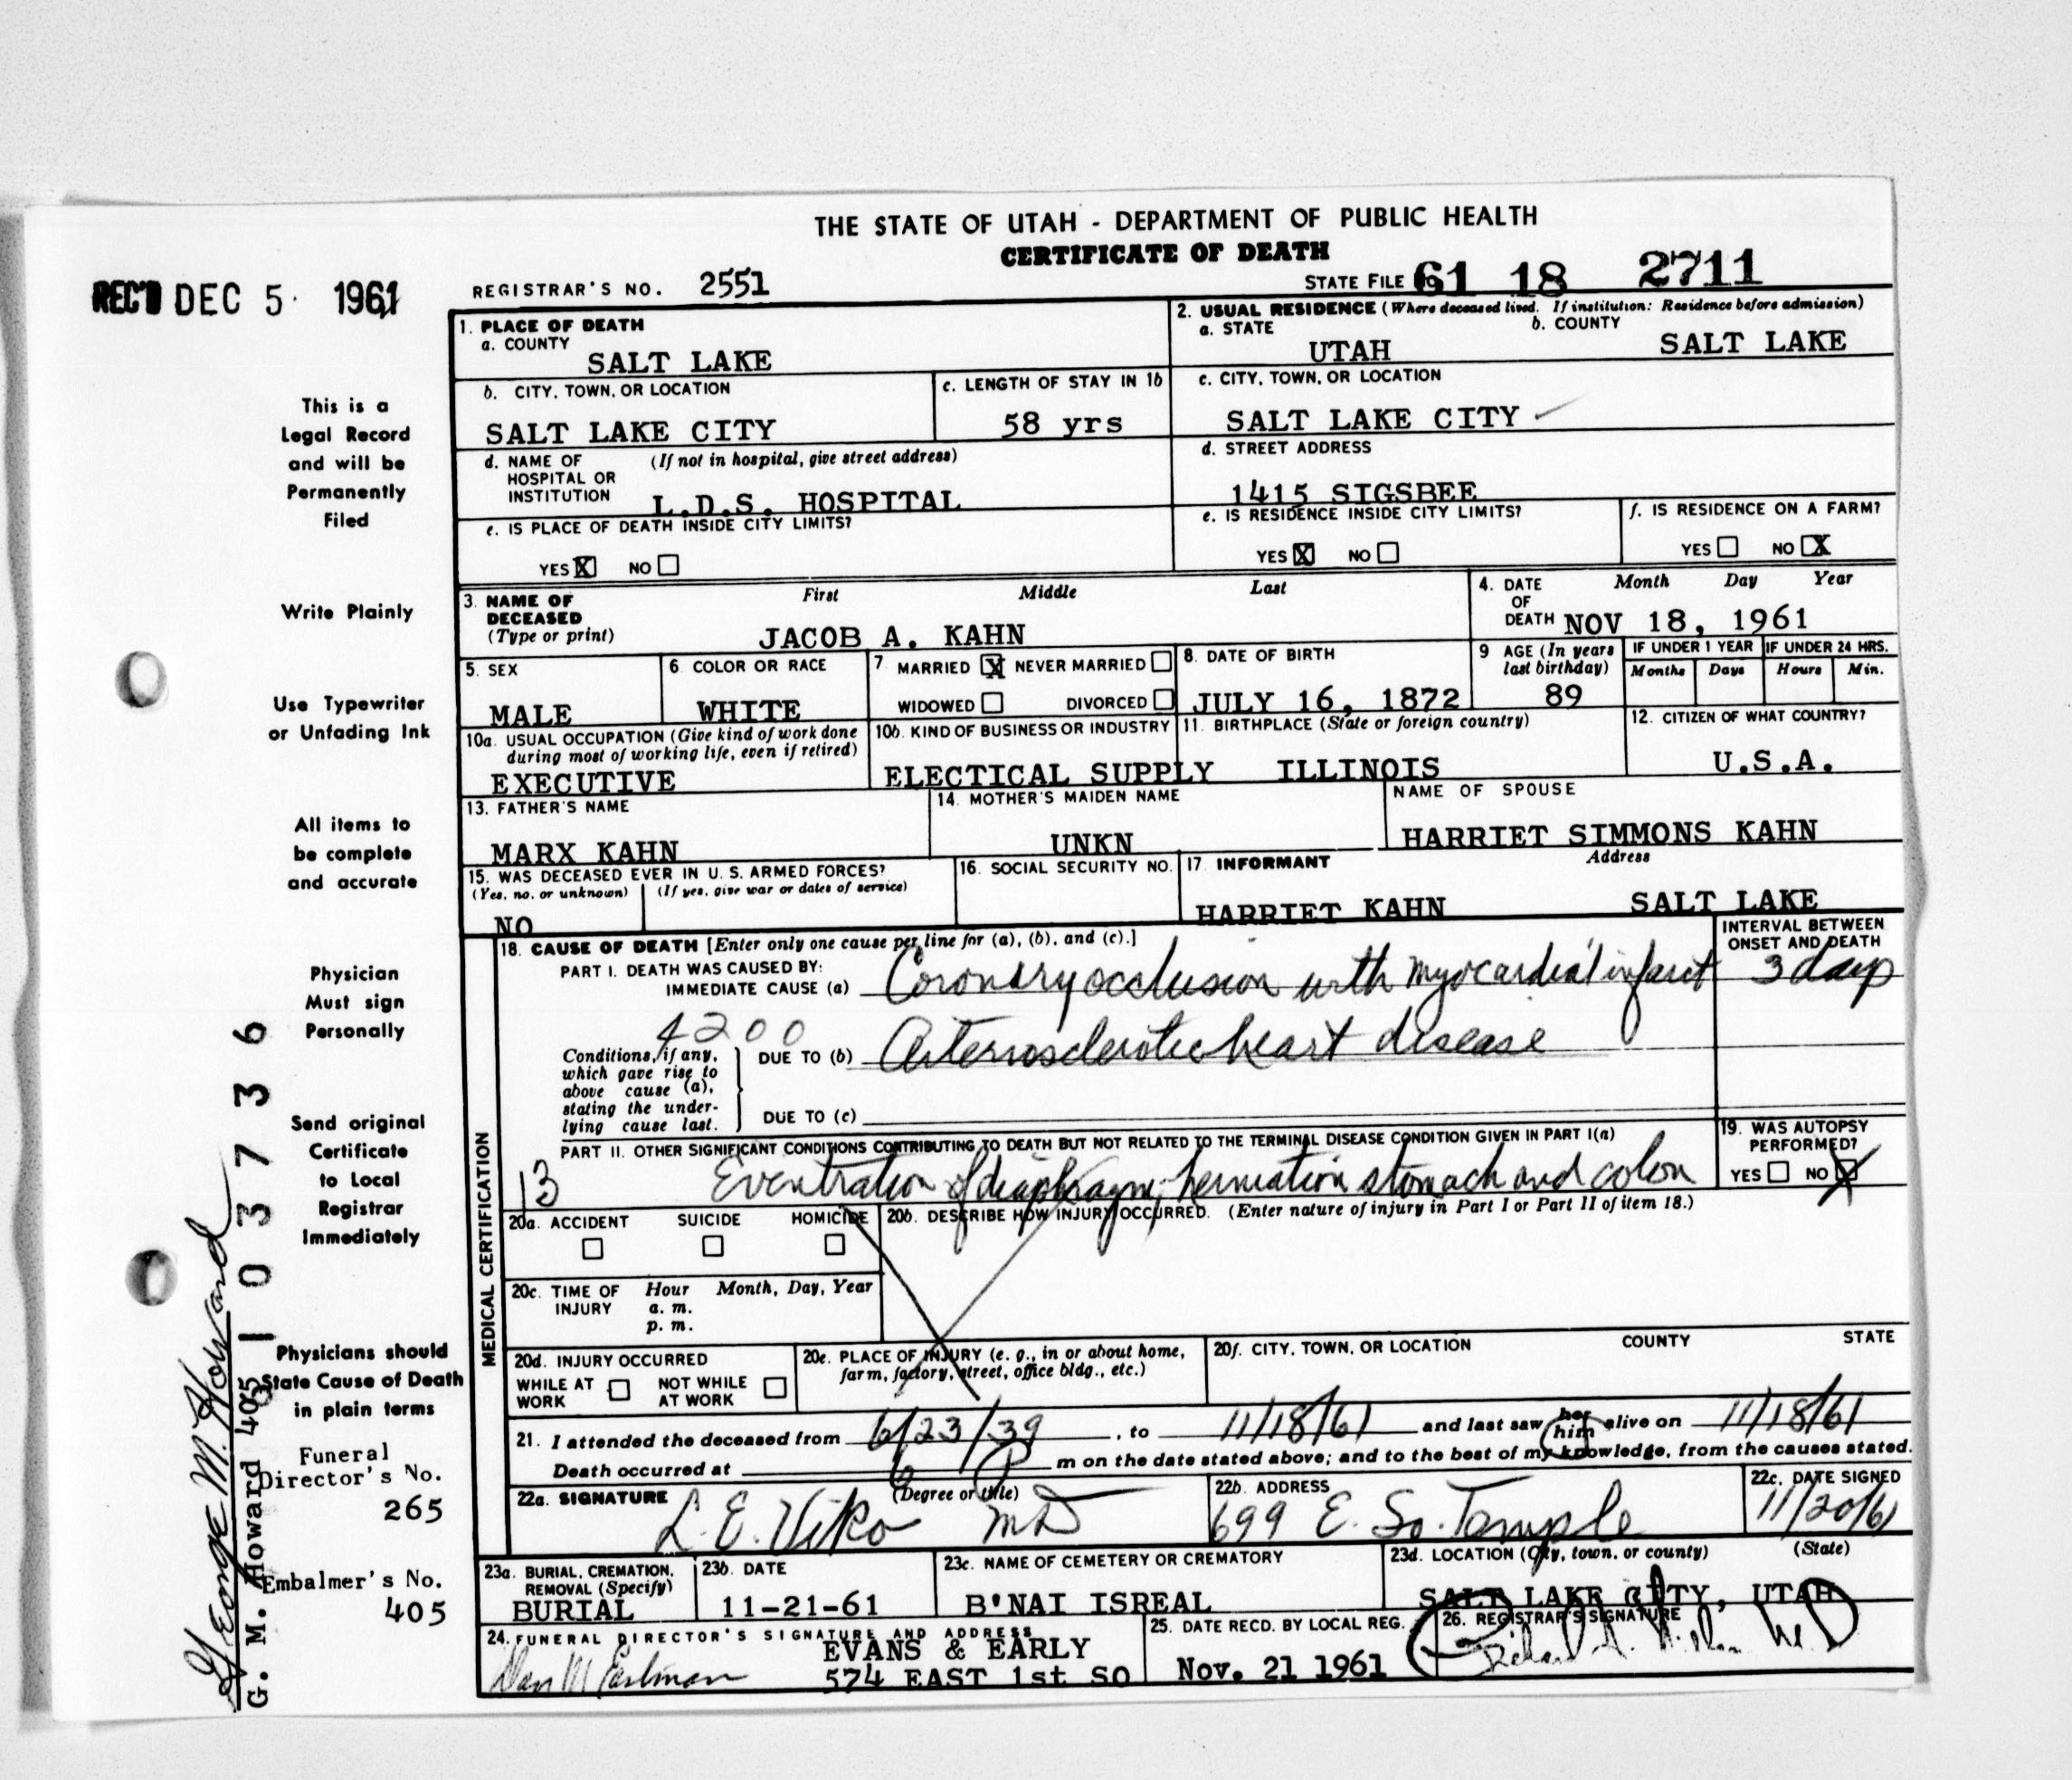 THE STATE OF UTAH - DEPARTMENT OF PUBLIC HEALTH
CERTIFICATE OF DEATH
REC'D DEC 5 1961
REGISTRAR'S NO. 2551
STATE FILE 61 18 2711
1. PLACE OF DEATH
a. COUNTY
SALT LAKE
2. USUAL RESIDENCE (Where deceased lived. If institution: Residence before admission)
a. STATE b. COUNTY
UTAH SALT LAKE
b. CITY, TOWN, OR LOCATION
SALT LAKE CITY
c. LENGTH OF STAY IN 1b
58 yrs
c. CITY, TOWN, OR LOCATION
SALT LAKE CITY
d. NAME OF (If not in hospital, give street address)
HOSPITAL OR
INSTITUTION
L.D.S. HOSPITAL
d. STREET ADDRESS
1415 SIGSBEE
e. IS PLACE OF DEATH INSIDE CITY LIMITS?
YES X NO
e. IS RESIDENCE INSIDE CITY LIMITS?
YES X NO
f. IS RESIDENCE ON A FARM?
YES NO X
3. NAME OF DECEASED (Type or print)
First Middle Last
JACOB A. KAHN
4. DATE OF DEATH
Month Day Year
NOV 18, 1961
5. SEX
MALE
6. COLOR OR RACE
WHITE
7. MARRIED X NEVER MARRIED
WIDOWED DIVORCED
8. DATE OF BIRTH
JULY 16, 1872
9 AGE (In years last birthday)
89
IF UNDER 1 YEAR IF UNDER 24 HRS.
Months Days Hours Min.
10a. USUAL OCCUPATION (Give kind of work done
during most of working life, even if retired)
EXECUTIVE
10b. KIND OF BUSINESS OR INDUSTRY
ELECTICAL SUPPLY
11. BIRTHPLACE (State or foreign country)
ILLINOIS
12. CITIZEN OF WHAT COUNTRY?
U.S.A.
13. FATHER'S NAME
MARX KAHN
14. MOTHER'S MAIDEN NAME
UNKN
NAME OF SPOUSE
HARRIET SIMMONS KAHN
15. WAS DECEASED EVER IN U. S. ARMED FORCES?
(Yes, no, or unknown) (If yes, give war or dates of service)
NO
16. SOCIAL SECURITY NO.
17. INFORMANT Address
HARRIET KAHN SALT LAKE
MEDICAL CERTIFICATION
18. CAUSE OF DEATH [Enter only one cause per line for (a), (b), and (c).]
PART I. DEATH WAS CAUSED BY:
IMMEDIATE CAUSE (a) Coronary occlusion with myocardial infarct
INTERVAL BETWEEN
ONSET AND DEATH
3 days
4200
Conditions, if any,
which gave rise to
above cause (a),
stating the under-
lying cause last.
DUE TO (b) Arteriosclerotic heart disease
DUE TO (c)
PART II. OTHER SIGNIFICANT CONDITIONS CONTRIBUTING TO DEATH BUT NOT RELATED TO THE TERMINAL DISEASE CONDITION GIVEN IN PART I(a)
13 Eventration of diaphragm, herniation stomach and colon
19. WAS AUTOPSY
PERFORMED?
YES NO X
20a. ACCIDENT SUICIDE HOMICIDE
20b. DESCRIBE HOW INJURY OCCURRED. (Enter nature of injury in Part I or Part II of item 18.)
20c. TIME OF INJURY
Hour Month, Day, Year
a. m.
p. m.
20d. INJURY OCCURRED
WHILE AT WORK NOT WHILE AT WORK
20e. PLACE OF INJURY (e. g., in or about home,
farm, factory, street, office bldg., etc.)
20f. CITY, TOWN, OR LOCATION COUNTY STATE
21. I attended the deceased from 6/23/39, to 11/18/61 and last saw her him alive on 11/18/61
Death occurred at 6 P m on the date stated above; and to the best of my knowledge, from the causes stated.
22a. SIGNATURE (Degree or title)
L. E. Viko MD
22b. ADDRESS
699 E. So. Temple
22c. DATE SIGNED
11/20/61
23a. BURIAL, CREMATION,
REMOVAL (Specify)
BURIAL
23b. DATE
11-21-61
23c. NAME OF CEMETERY OR CREMATORY
B'NAI ISREAL
23d. LOCATION (City, town, or county) (State)
SALT LAKE CITY, UTAH
24. FUNERAL DIRECTOR'S SIGNATURE AND ADDRESS
EVANS & EARLY
574 EAST 1st SO
25. DATE RECD. BY LOCAL REG.
Nov. 21 1961
26. REGISTRAR'S SIGNATURE
This is a
Legal Record
and will be
Permanently
Filed
Write Plainly
Use Typewriter
or Unfading Ink
All items to
be complete
and accurate
Physician
Must sign
Personally
Send original
Certificate
to Local
Registrar
Immediately
Physicians should
State Cause of Death
in plain terms
Funeral
Director's No.
265
Embalmer's No.
405
George M. Howard
G. M. Howard 405
103736